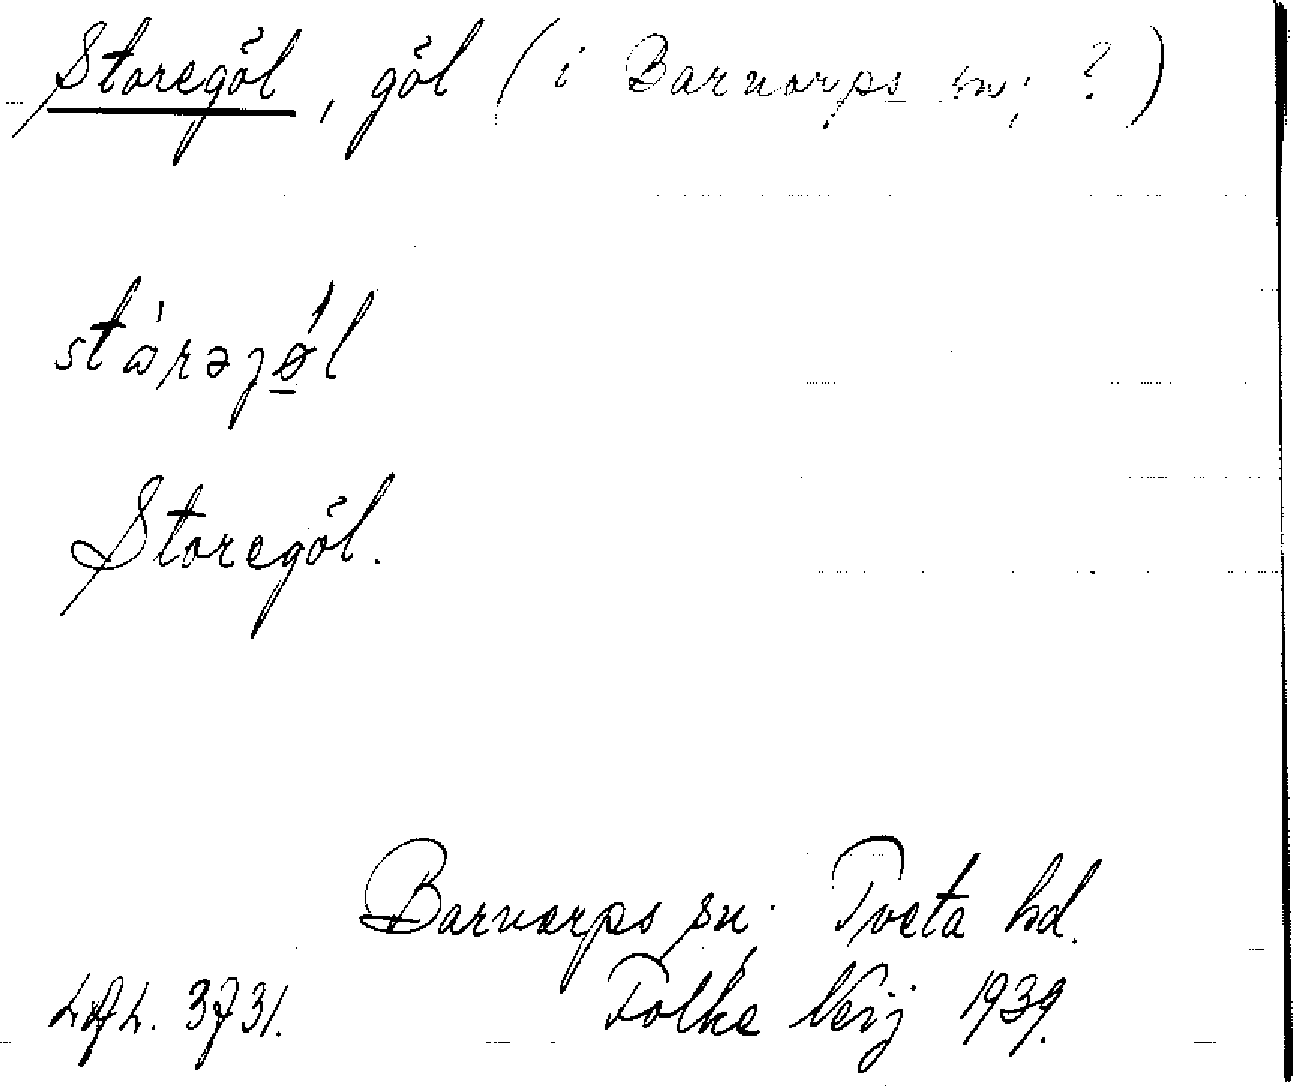 Storegöl, göl (i Barnarps sn; ?)
Storegöl.
Barnarps sn; Tveta hd.
Folke Neij 1939.
3731.